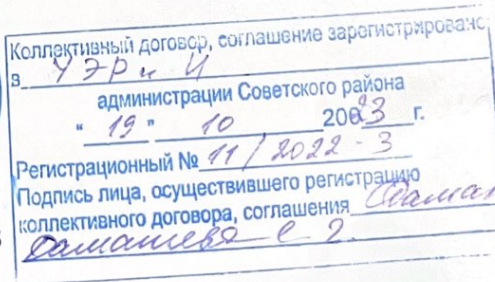 Коллективный договор, соглашение зарегистрировано
в УЭР и И
администрации Советского района
"19" 10 2023 г.
Регистрационный № 11/2022-3
Подпись лица, осуществившего регистрацию
коллективного договора, соглашения